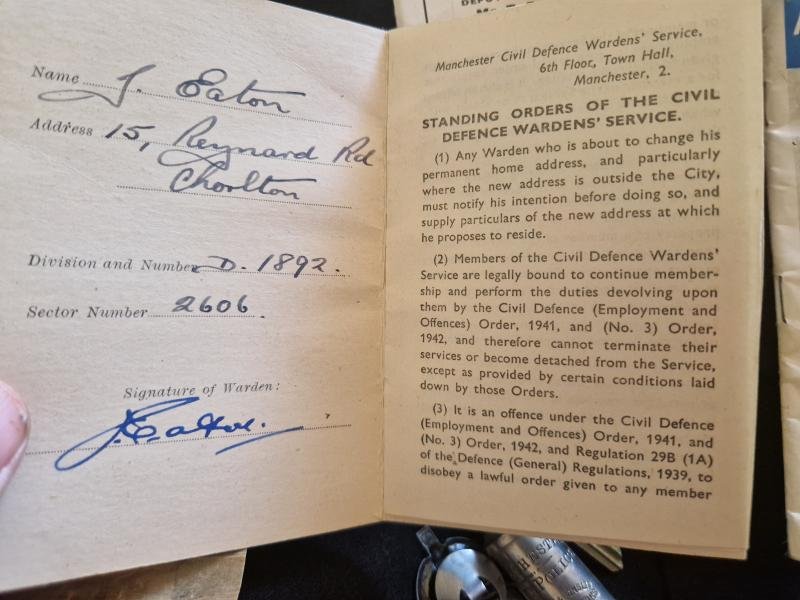 Name J. Eaton
Address 15, Reynard Rd
Chorlton
Division and Number D. 1892.
Sector Number 2606.
Signature of Warden:
J. Eaton.
Manchester Civil Defence Wardens' Service,
6th Floor, Town Hall,
Manchester, 2.
STANDING ORDERS OF THE CIVIL
DEFENCE WARDENS' SERVICE.
(1) Any Warden who is about to change his
permanent home address, and particularly
where the new address is outside the City,
must notify his intention before doing so, and
supply particulars of the new address at which
he proposes to reside.
(2) Members of the Civil Defence Wardens'
Service are legally bound to continue member-
ship and perform the duties devolving upon
them by the Civil Defence (Employment and
Offences) Order, 1941, and (No. 3) Order,
1942, and therefore cannot terminate their
services or become detached from the Service,
except as provided by certain conditions laid
down by those Orders.
(3) It is an offence under the Civil Defence
(Employment and Offences) Order, 1941, and
(No. 3) Order, 1942, and Regulation 29B (1A)
of the Defence (General) Regulations, 1939, to
disobey a lawful order given to any member
POLICE